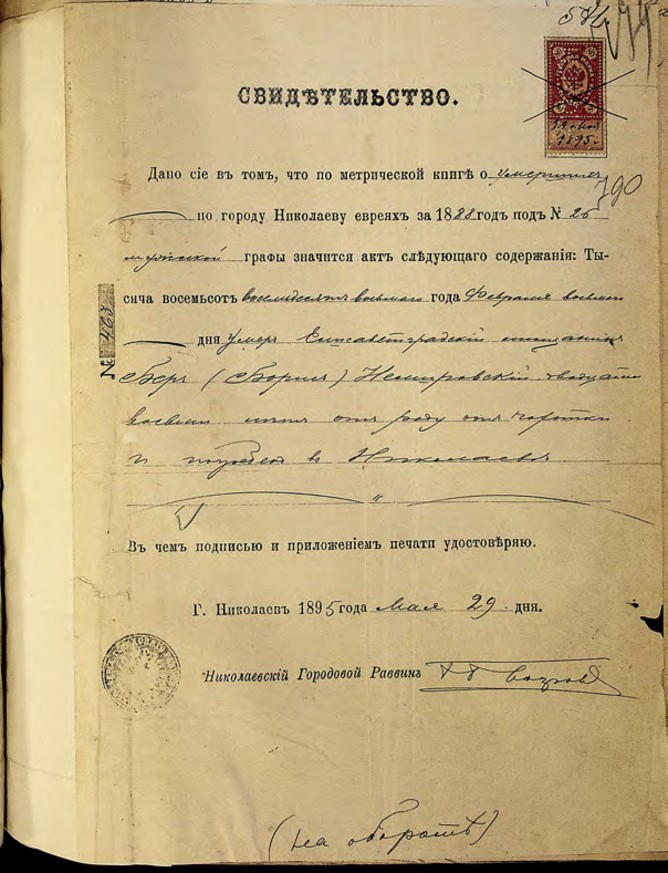 СВИДѢТЕЛЬСТВО.
29 мая
1895 г.
790
Дано сіе въ томъ, что по метрической книгѣ о умершихъ
по городу Николаеву евреяхъ за 1888 годъ подъ № 26
мужской графы значится актъ слѣдующаго содержанія: Ты-
сяча восемьсотъ восемьдесятъ восьмаго года Февраля восьмаго
дня умеръ Елисаветградскій мѣщанинъ
Беръ (Борисъ) Немировскій двадцати
восьми лѣтъ отъ роду отъ чахотки
и погребенъ въ Николаевѣ
"
№ 423
Въ чемъ подписью и приложеніемъ печати удостовѣряю.
Г. Николаевъ 1895 года Мая 29 дня.
Николаевскій Городовой Раввинъ
(на оборотѣ)